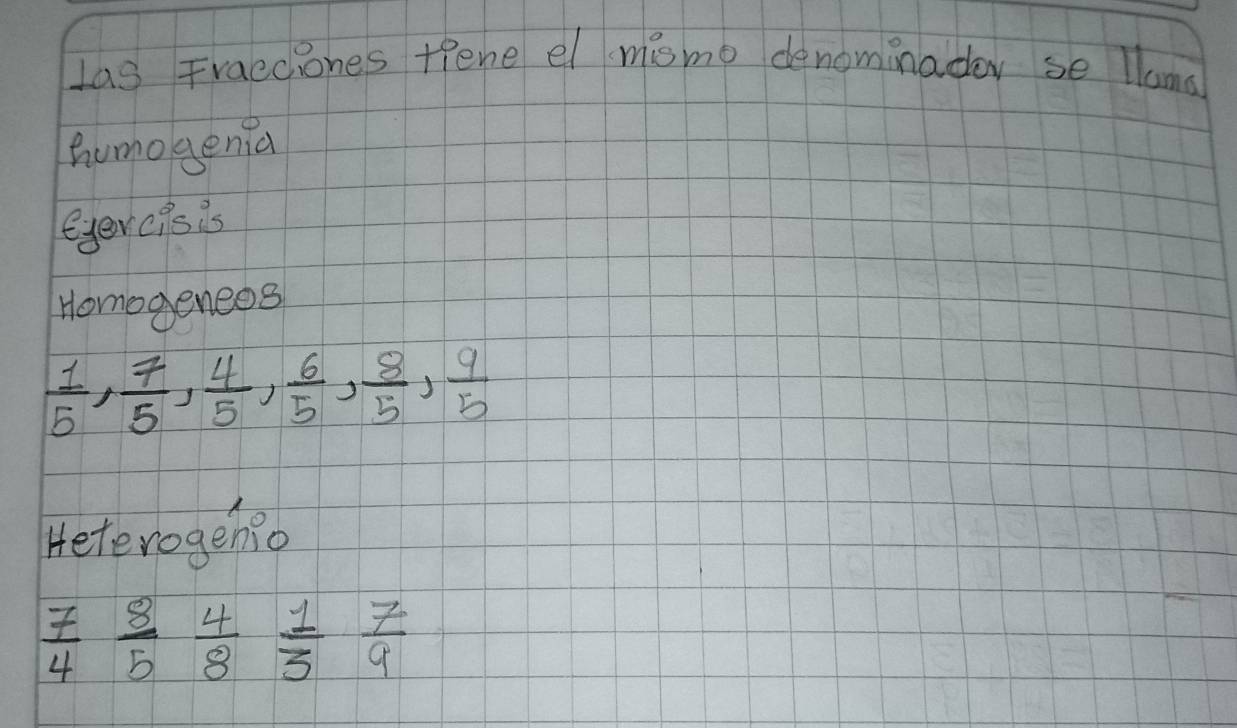 las Fracciones tiene el mismo denominador se llama
humogenia
Eyercisis
Homogeneos
1/5, 7/5, 4/5, 6/5, 8/5, 9/5
Heterogénio
7/4 8/5 4/8 1/3 7/9